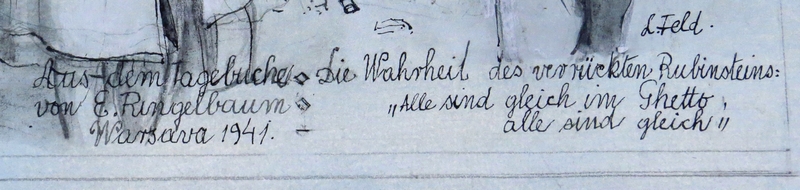 L. Feld.
Aus dem Tagebuche Die Wahrheit des verrückten Rubinsteins:
von E. Ringelbaum „Alle sind gleich im Ghetto,
Warsava 1941. – alle sind gleich"